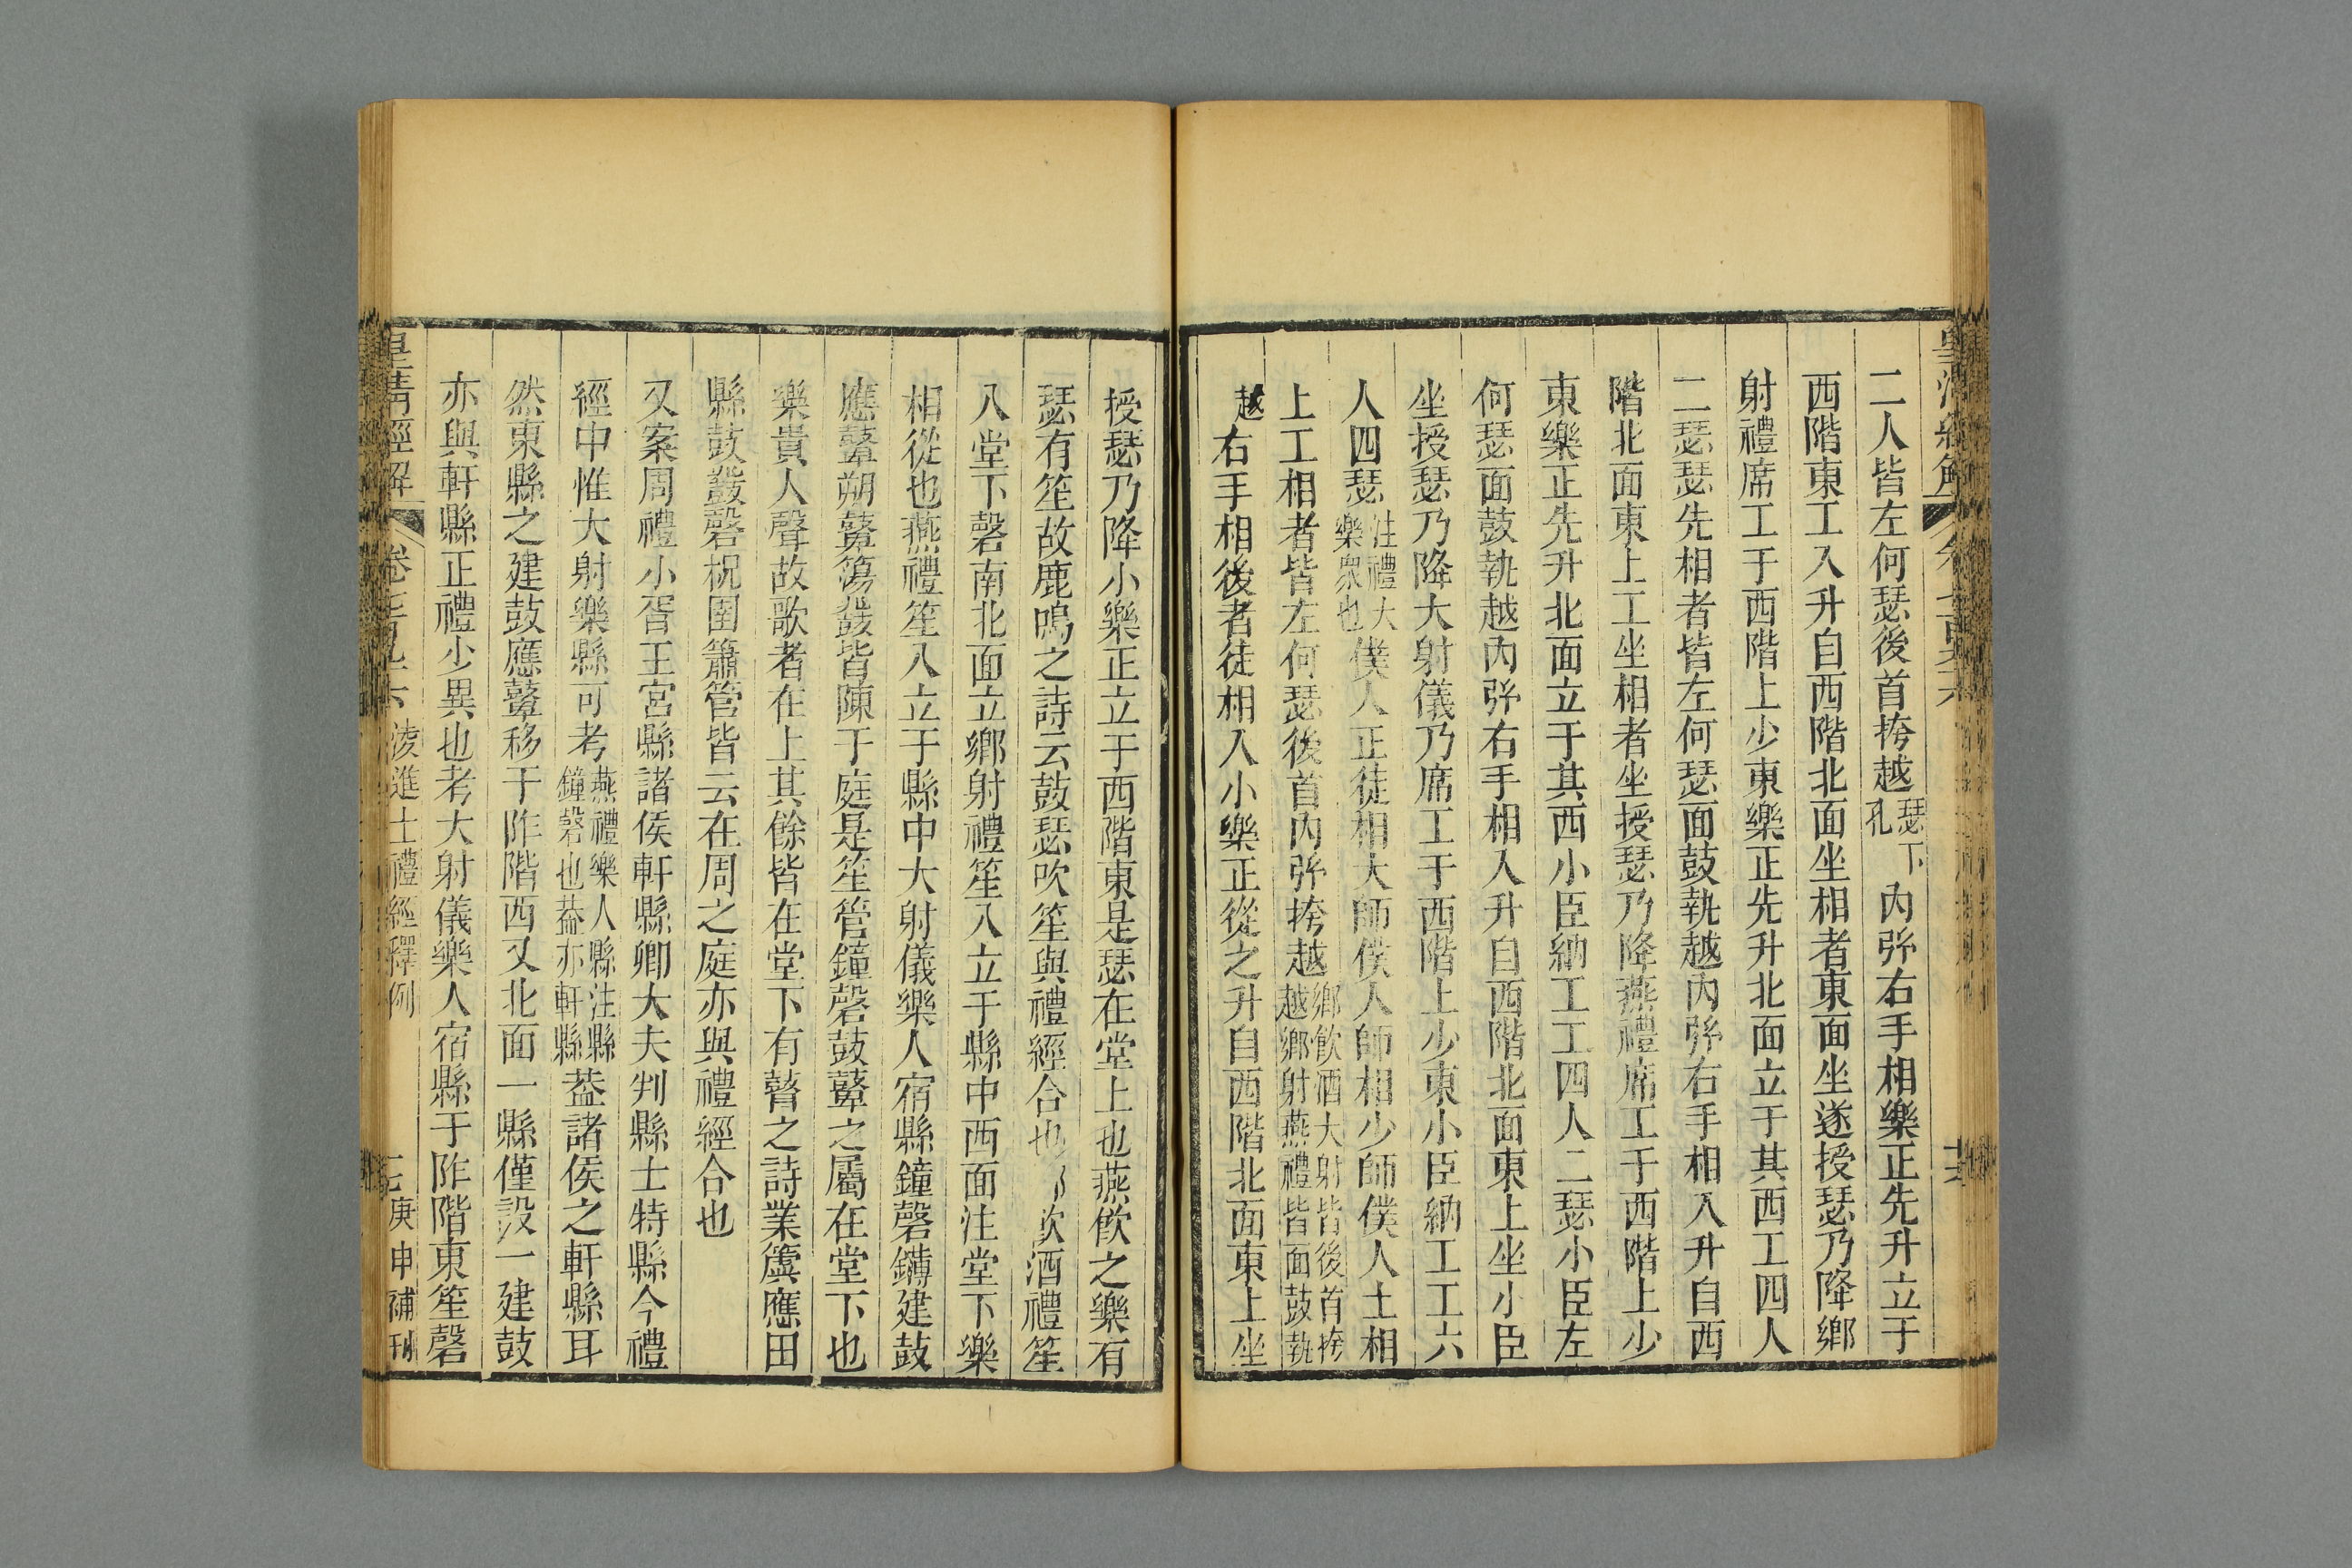 二人皆左何瑟後首挎越瑟下孔內弅右手相樂正先升立于
西階東工入升自西階北面坐相者東面坐遂授瑟乃降鄉
射禮席工于西階上少東樂正先升北面立于其西工四人
二瑟瑟先相者皆左何瑟面鼓執越內弅右手相入升自西
階北面東上工坐相者坐授瑟乃降燕禮席工于西階上少
東樂正先升北面立于其西小臣納工工四人二瑟小臣左
何瑟面鼓執越內弅右手相入升自西階北面東上坐小臣
坐授瑟乃降大射儀乃席工于西階上少東小臣納工工六
人四瑟注禮大樂衆也僕人正徒相大師僕人師相少師僕人士相
上工相者皆左何瑟後首內弅挎越鄉飲酒大射皆後首挎越鄉射燕禮皆面鼓執
越右手相後者徒相入小樂正從之升自西階北面東上坐
授瑟乃降小樂正立于西階東是瑟在堂上也燕飮之樂有
瑟有笙故鹿鳴之詩云鼓瑟吹笙與禮經合也 飮酒禮笙
入堂下磬南北面立鄉射禮笙入立于縣中西面注堂下樂
相從也燕禮笙入立于縣中大射儀樂人宿縣鐘磬鑮建鼓
應鼙朔鼙簜鼗皆陳于庭是笙管鐘磬鼓鼙之屬在堂下也
樂貴人聲故歌者在上其餘皆在堂下有瞽之詩業簴應田
縣鼓鼗磬柷圉簫管皆云在周之庭亦與禮經合也
又案周禮小胥王宮縣諸侯軒縣卿大夫判縣士特縣今禮
經中惟大射樂縣可考燕禮樂人縣注縣鐘磬也葢亦軒縣葢諸侯之軒縣耳
然東縣之建鼓應鼙移于阼階西又北面一縣僅設一建鼓
亦與軒縣正禮少異也考大射儀樂人宿縣于阼階東笙磬
皇清經解 卷 凌進士禮經釋例 庚申補刊